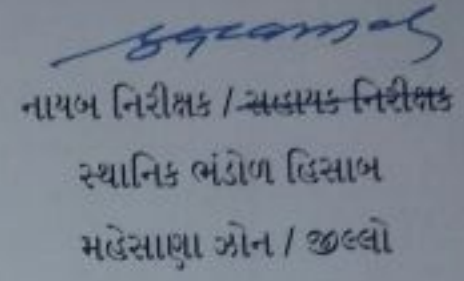 નાયબ નિરીક્ષક / સહાયક નિરીક્ષક
સ્થાનિક ભંડોળ હિસાબ
મહેસાણા ઝોન / જીલ્લો